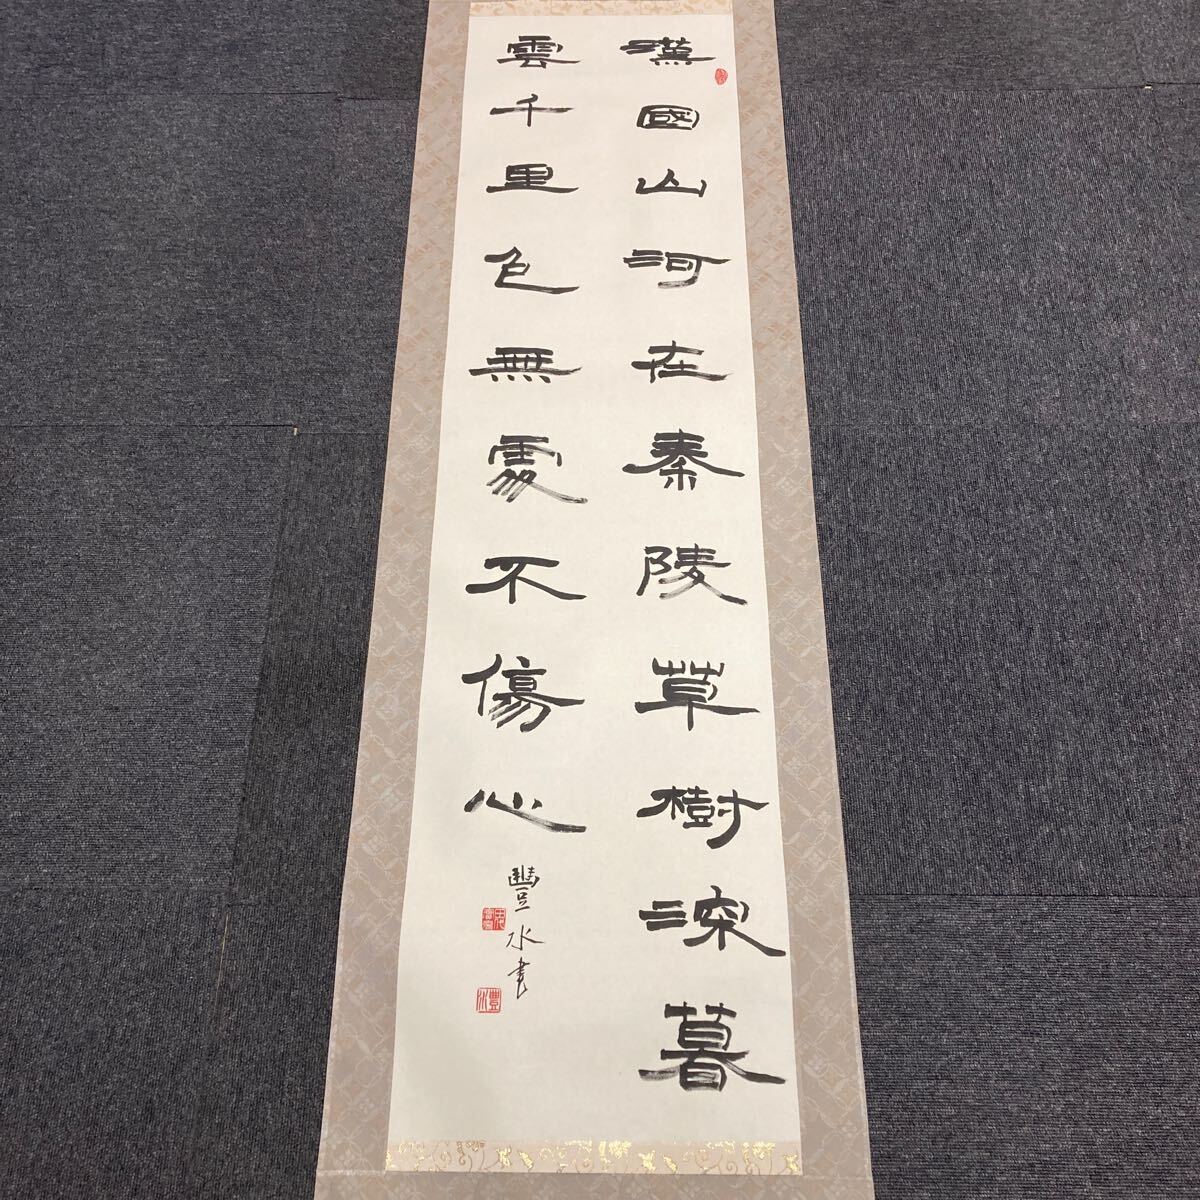 漢國山河在秦陵草樹深暮
雲千里色無處不傷心
豐水書
豐水